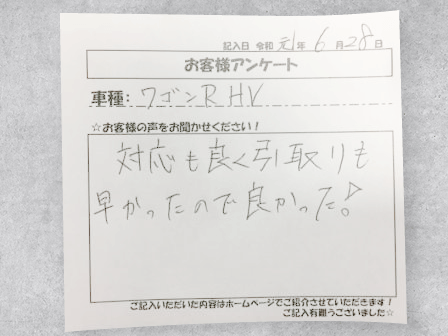 記入日 令和 元年 6月28日
お客様アンケート
車種: ワゴンR HV
☆お客様の声をお聞かせください！
対応も良く引取りも
早かったので良かった！
ご記入いただいた内容はホームページでご紹介させていただきます！
ご記入有難うございました☆